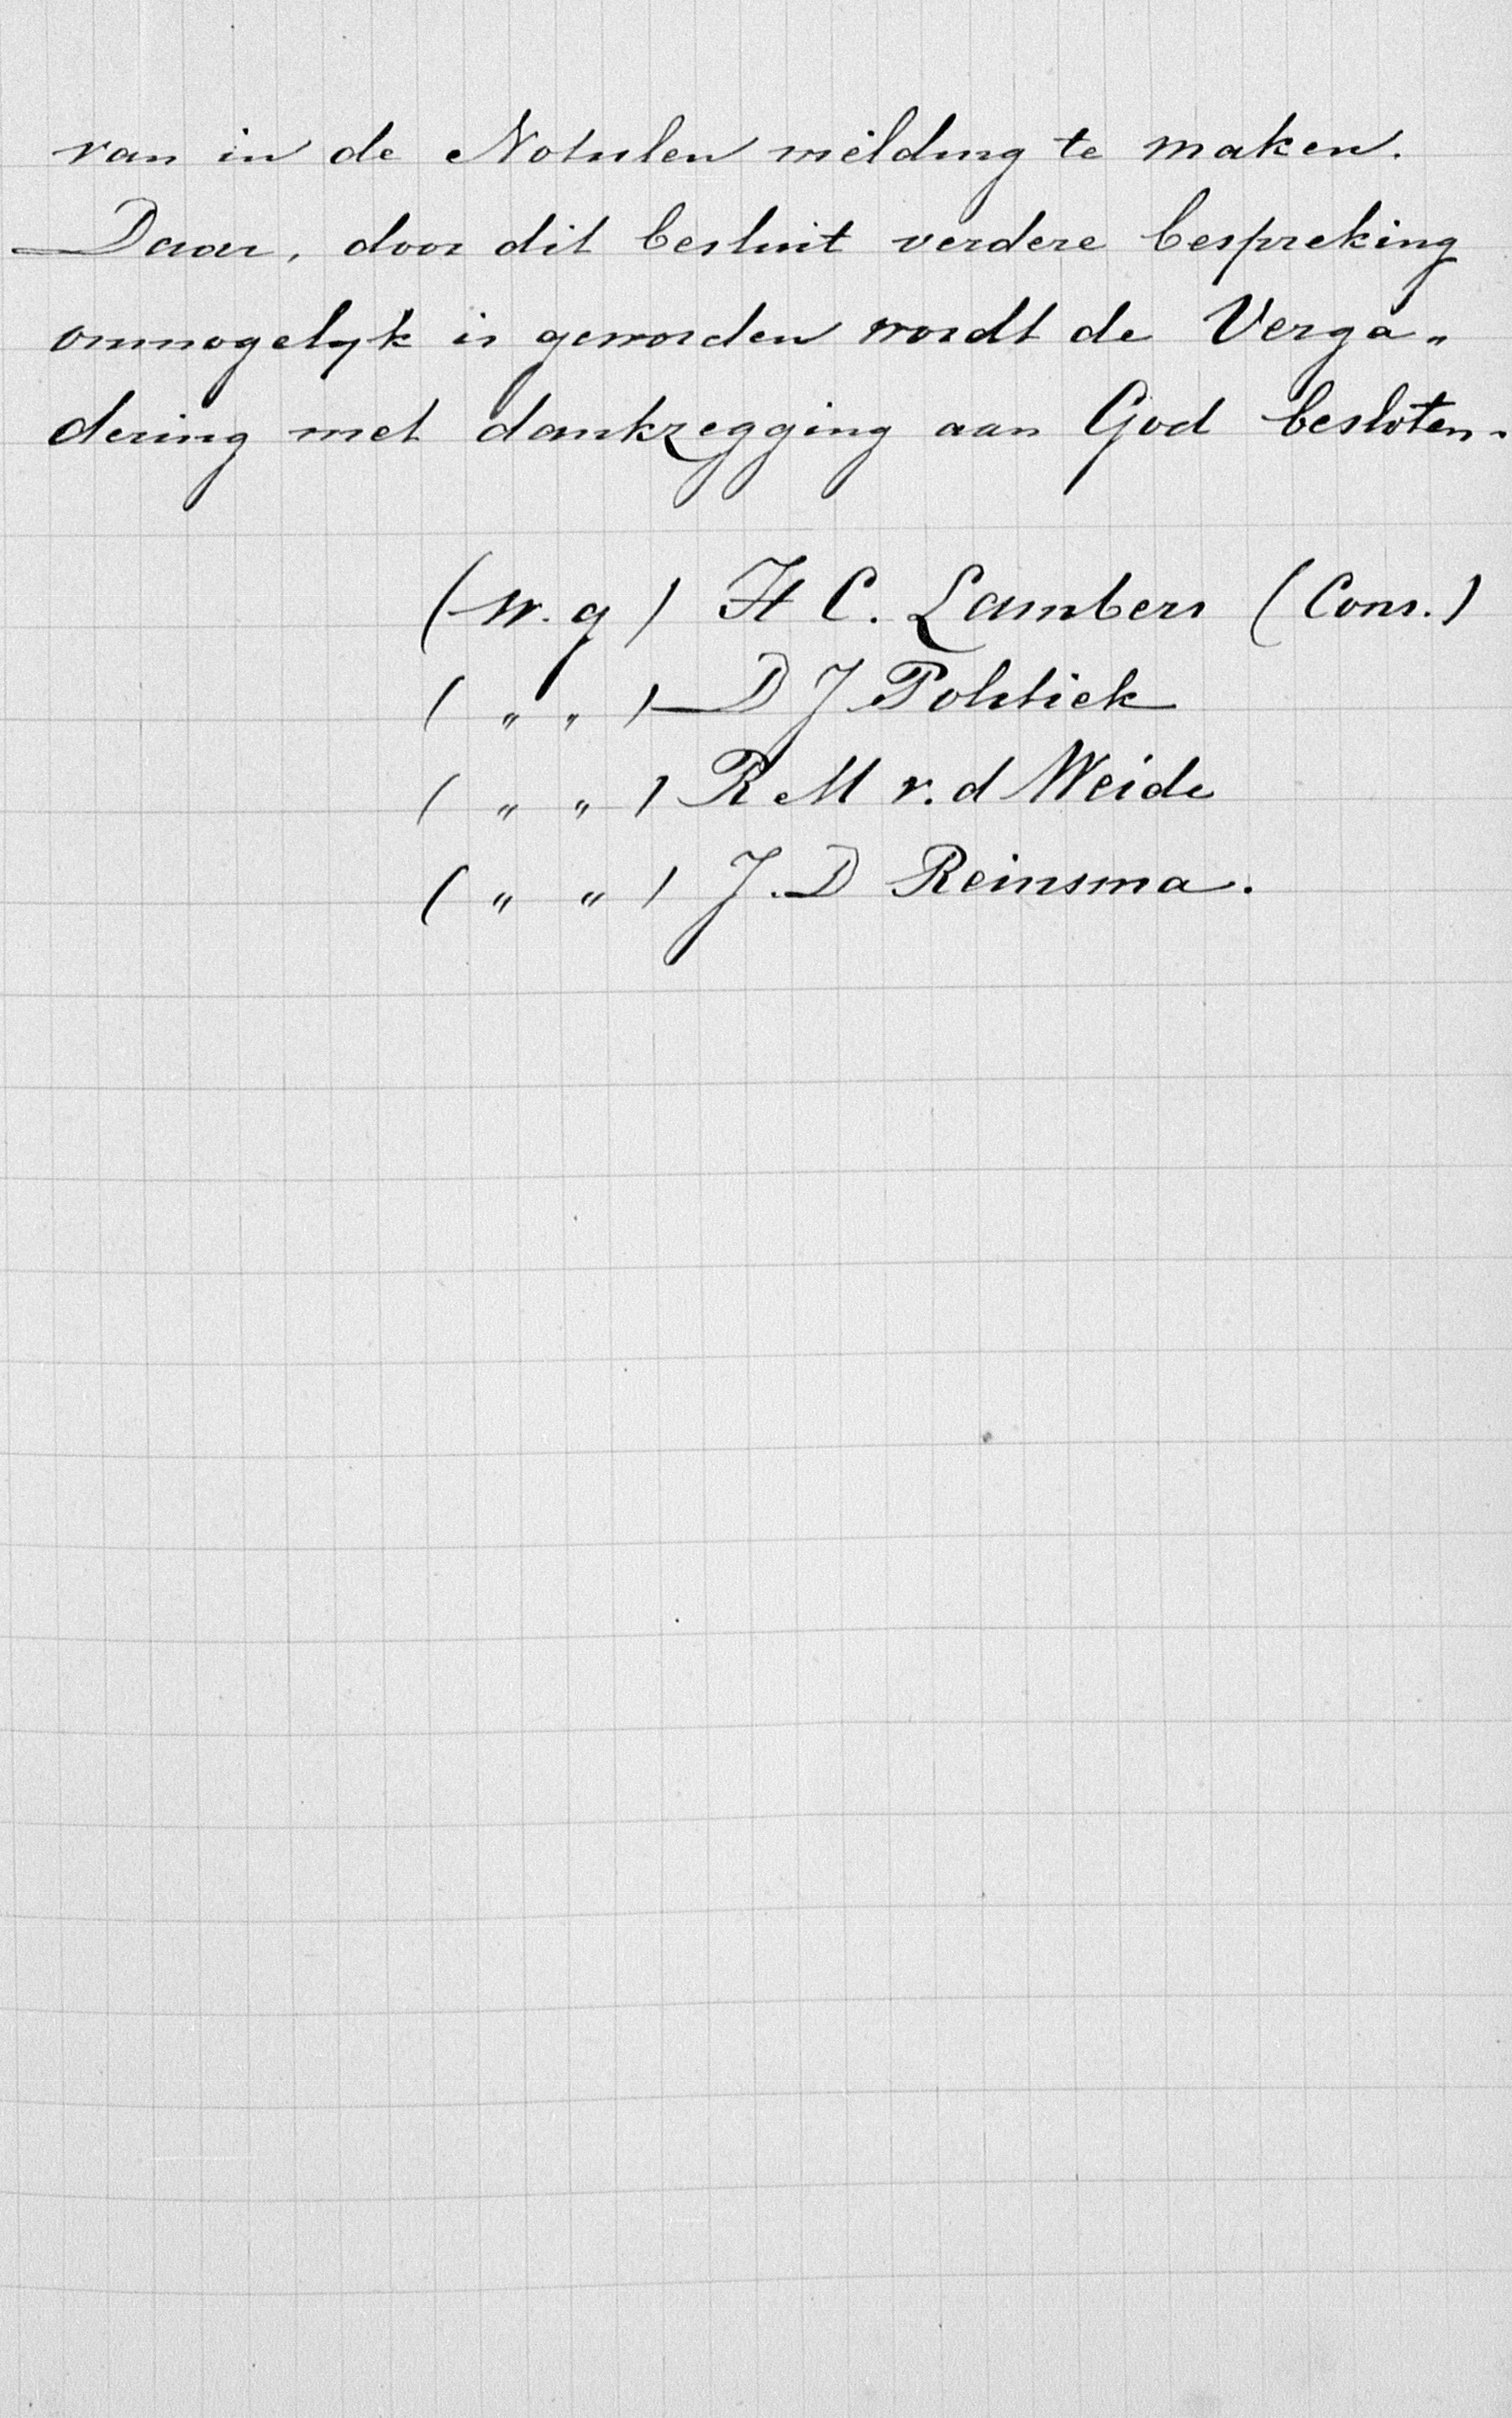 van in de Notulen melding te maken.
Daar, door dit besluit verdere bespreking
onmogelyk is geworden wordt de Verga„
dering met dankzegging aan God besloten.
(w.g) H C. Lambers (Cons.)
( „ „ ) D J Politiek
( „ „ ) R M v.d Weide
( „ „ ) J.D Reinsma.